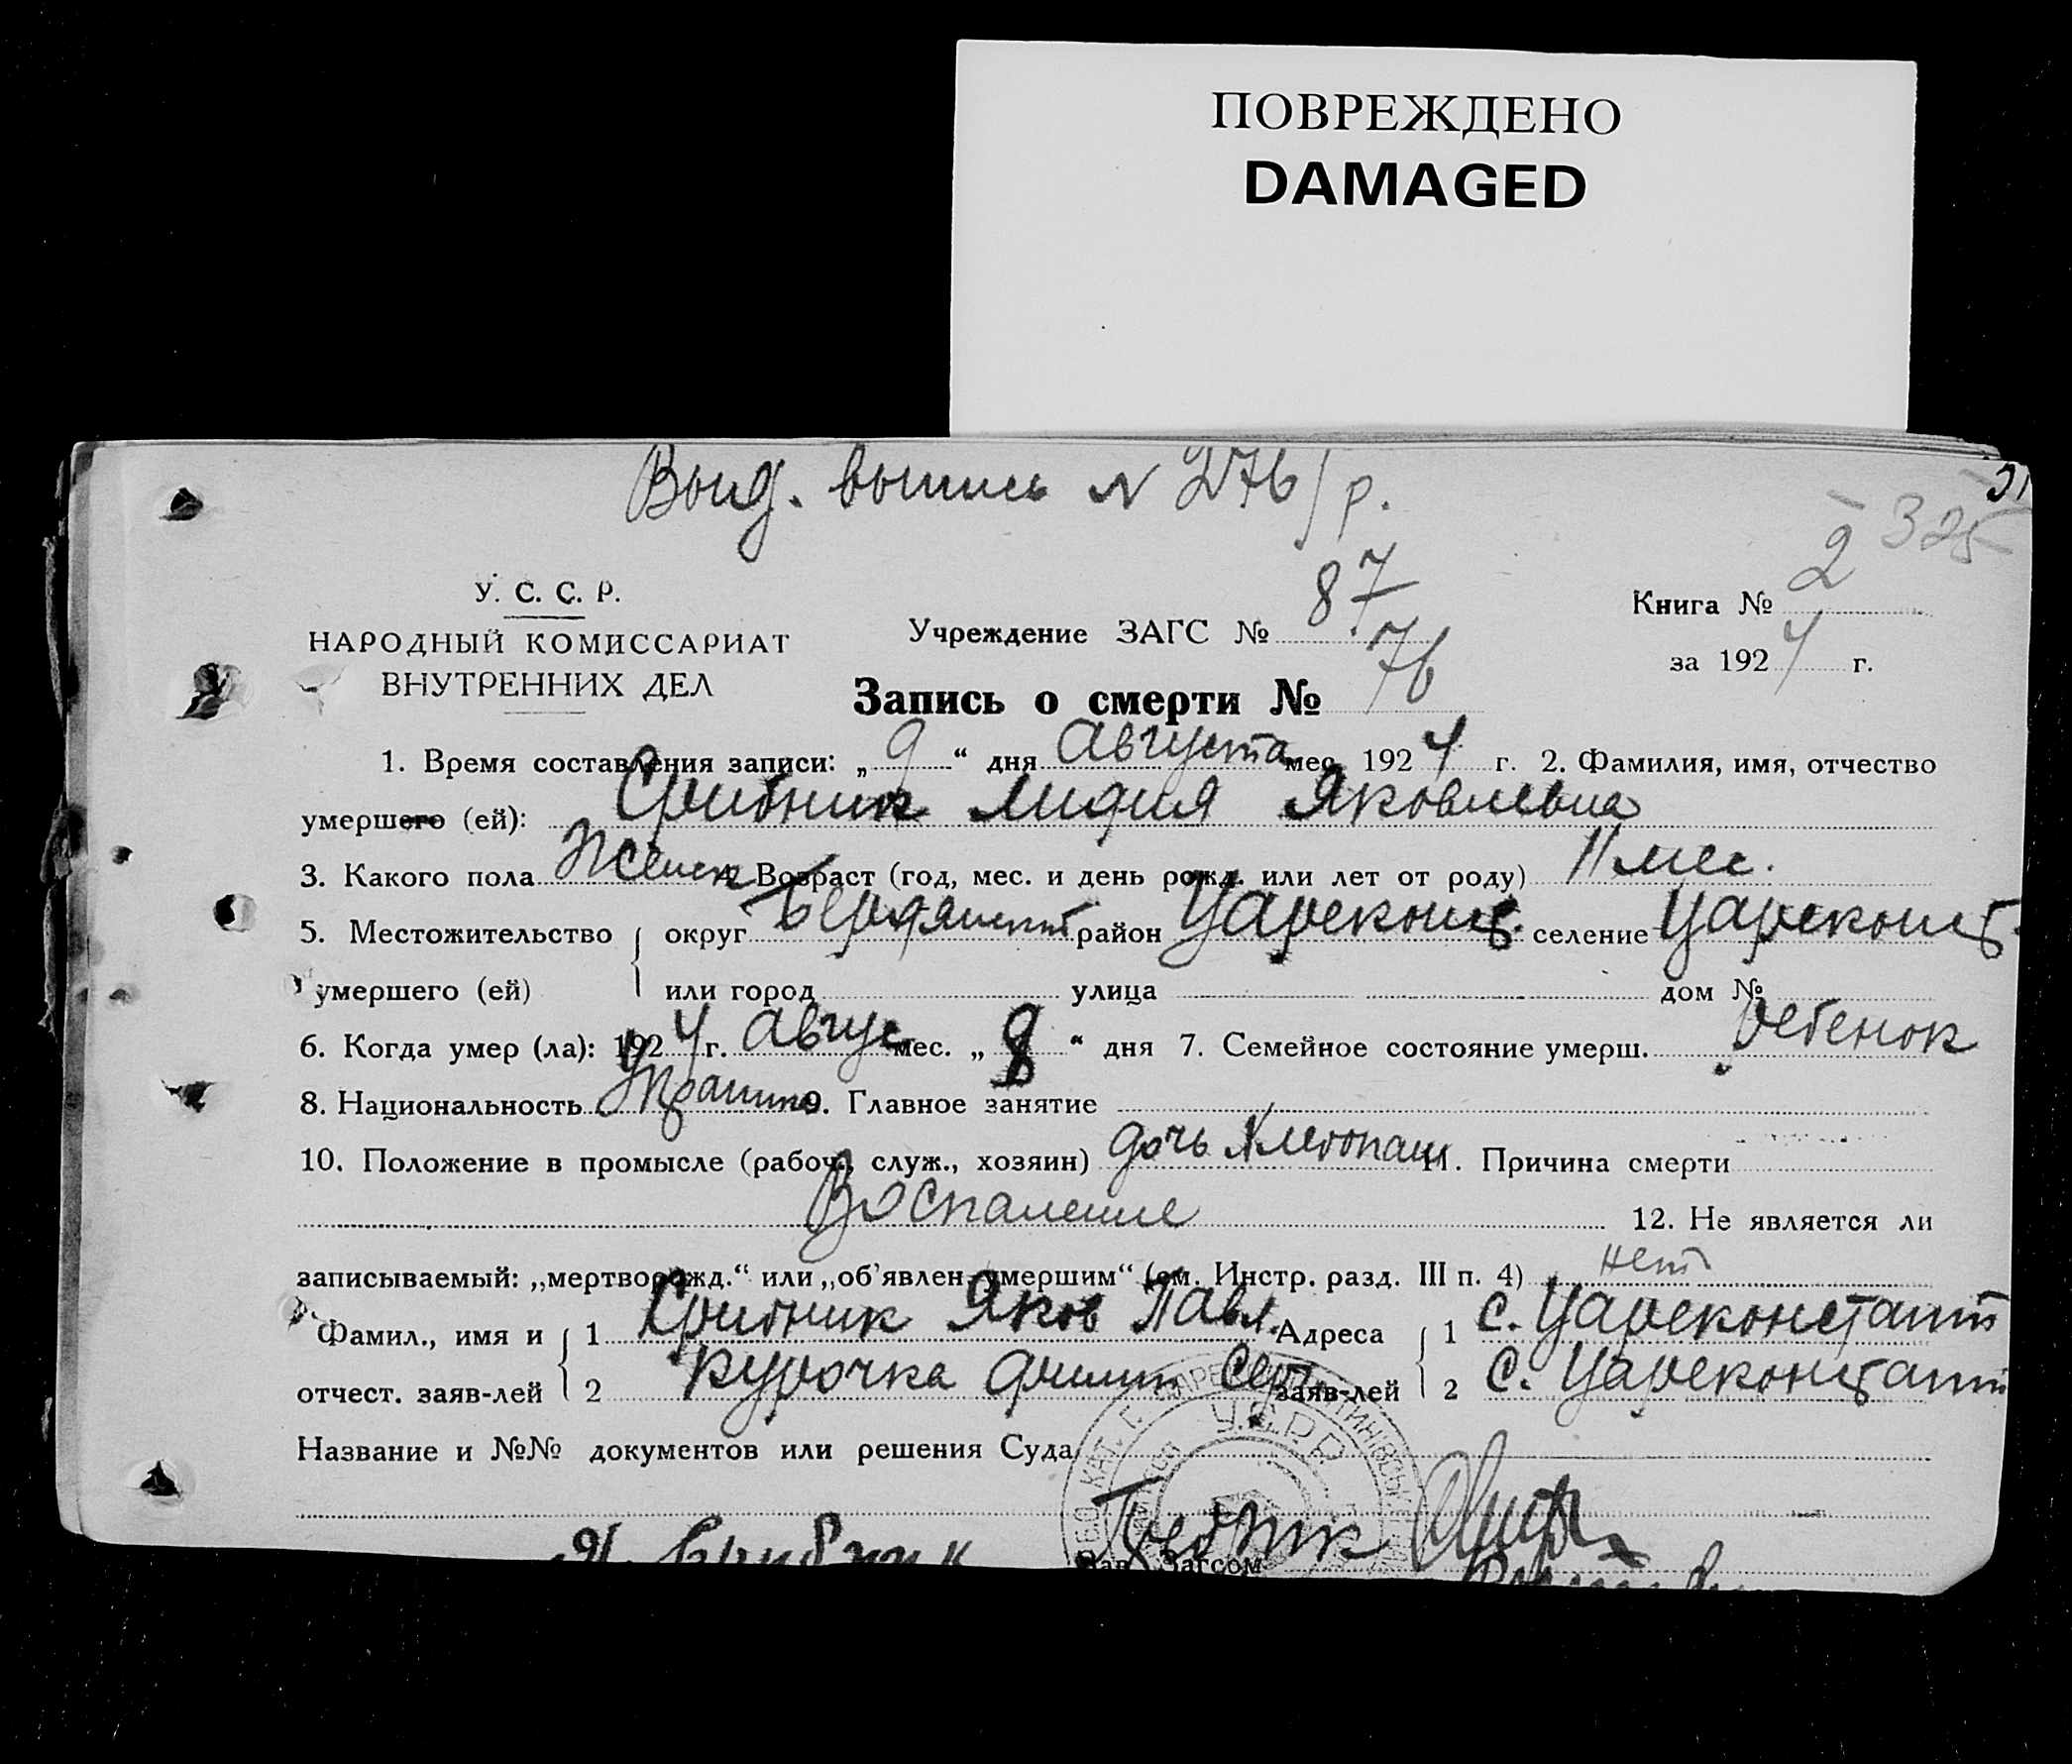 ПОВРЕЖДЕНО
DAMAGED
Выд. выпись N 276/р.
2 325
У. С. С. Р.
НАРОДНЫЙ КОМИССАРИАТ
ВНУТРЕННИХ ДЕЛ
Учреждение ЗАГС № 87
Книга № 2
за 1924 г.
Запись о смерти № 76
1. Время составления записи: „9“ дня Августа мес. 1924 г. 2. Фамилия, имя, отчество
умершего (ей): Срибник Лидия Яковлевна
3. Какого пола Женск 4. Возраст (год, мес. и день рожд. или лет от роду) 11 мес.
5. Местожительство округ Бердянский район Цареконст. селение Цареконст.
умершего (ей) или город улица дом №
6. Когда умер (ла): 1924 г. Авгус мес. „8“ дня 7. Семейное состояние умерш. ребенок
8. Национальность Украин 9. Главное занятие
10. Положение в промысле (рабоч., служ., хозяин) дочь Хлебопаш 11. Причина смерти
Воспаление 12. Не является ли
записываемый: „мертворожд.“ или „об'явлен. умершим“ (см. Инстр. разд. III п. 4) нет
Фамил., имя и 1 Срибник Яков Павл. Адреса 1 с. Цареконстант
отчест. заяв-лей 2 Курочка Филип Серг заяв-лей 2 с. Цареконстант
Название и №№ документов или решения Суда
У.С.Р.Р.
Я. Срибник
Зав. Загсом